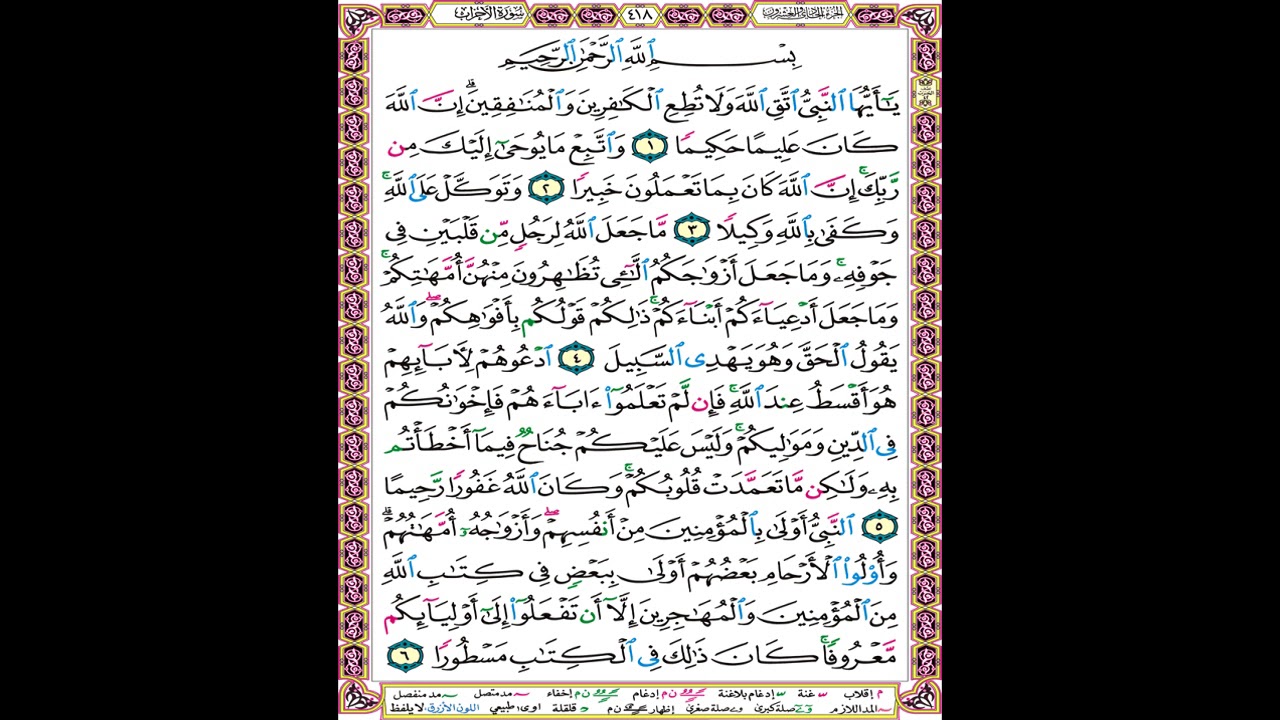 سورة الأحزاب ٤١٨ الجزء الحادي والعشرون
بِسْمِ ٱللَّهِ ٱلرَّحْمَٰنِ ٱلرَّحِيمِ
يَٰٓأَيُّهَا ٱلنَّبِىُّ ٱتَّقِ ٱللَّهَ وَلَا تُطِعِ ٱلْكَٰفِرِينَ وَٱلْمُنَٰفِقِينَ ۗ إِنَّ ٱللَّهَ
كَانَ عَلِيمًا حَكِيمًا ١ وَٱتَّبِعْ مَا يُوحَىٰٓ إِلَيْكَ مِن
رَّبِّكَ ۚ إِنَّ ٱللَّهَ كَانَ بِمَا تَعْمَلُونَ خَبِيرًا ٢ وَتَوَكَّلْ عَلَى ٱللَّهِ ۚ
وَكَفَىٰ بِٱللَّهِ وَكِيلًا ٣ مَّا جَعَلَ ٱللَّهُ لِرَجُلٍ مِّن قَلْبَيْنِ فِى
جَوْفِهِۦ ۚ وَمَا جَعَلَ أَزْوَٰجَكُمُ ٱلَّٰٓـِٔى تُظَٰهِرُونَ مِنْهُنَّ أُمَّهَٰتِكُمْ ۚ
وَمَا جَعَلَ أَدْعِيَآءَكُمْ أَبْنَآءَكُمْ ۚ ذَٰلِكُمْ قَوْلُكُم بِأَفْوَٰهِكُمْ ۖ وَٱللَّهُ
يَقُولُ ٱلْحَقَّ وَهُوَ يَهْدِى ٱلسَّبِيلَ ٤ ٱدْعُوهُمْ لِءَابَآئِهِمْ
هُوَ أَقْسَطُ عِندَ ٱللَّهِ ۚ فَإِن لَّمْ تَعْلَمُوٓا۟ ءَابَآءَهُمْ فَإِخْوَٰنُكُمْ
فِى ٱلدِّينِ وَمَوَٰلِيكُمْ ۚ وَلَيْسَ عَلَيْكُمْ جُنَاحٌ فِيمَآ أَخْطَأْتُم
بِهِۦ وَلَٰكِن مَّا تَعَمَّدَتْ قُلُوبُكُمْ ۚ وَكَانَ ٱللَّهُ غَفُورًا رَّحِيمًا
٥ ٱلنَّبِىُّ أَوْلَىٰ بِٱلْمُؤْمِنِينَ مِنْ أَنفُسِهِمْ ۖ وَأَزْوَٰجُهُۥٓ أُمَّهَٰتُهُمْ ۗ
وَأُو۟لُوا۟ ٱلْأَرْحَامِ بَعْضُهُمْ أَوْلَىٰ بِبَعْضٍ فِى كِتَٰبِ ٱللَّهِ
مِنَ ٱلْمُؤْمِنِينَ وَٱلْمُهَٰجِرِينَ إِلَّآ أَن تَفْعَلُوٓا۟ إِلَىٰٓ أَوْلِيَآئِكُم
مَّعْرُوفًا ۚ كَانَ ذَٰلِكَ فِى ٱلْكِتَٰبِ مَسْطُورًا ٦
م إقلاب غنة إدغام بلاغنة ن م إدغام ن م إخفاء مد متصل مد منفصل
المد اللازم صلة كبرى صلة صغرى إظهار ن م قلقلة اوى: طبيعي اللون الأزرق: لا يلفظ